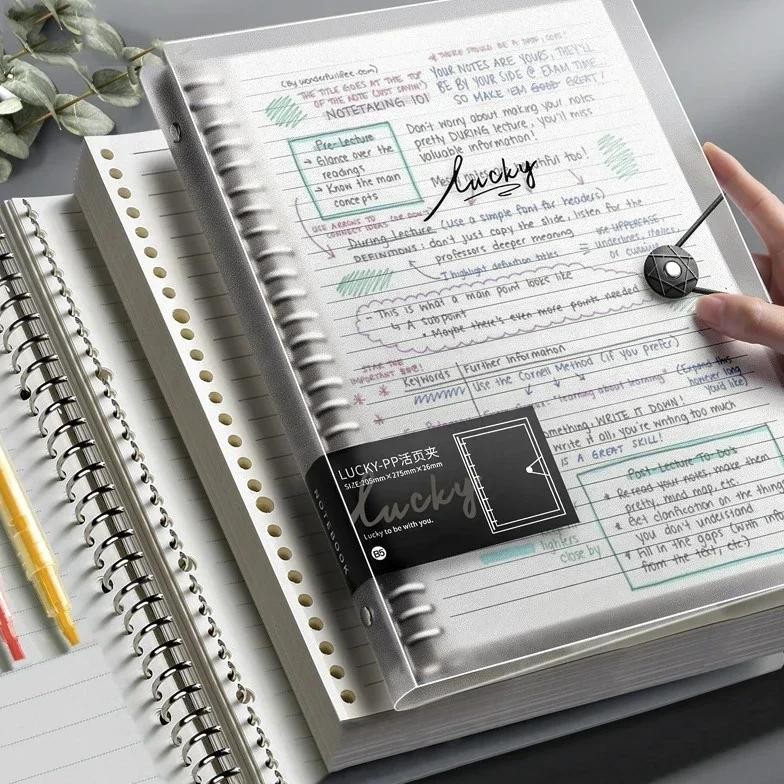 (By wonderfullee.com)
THE TITLE GOES AT THE TOP
OF THE NOTE (JUST SAYIN')
NOTETAKING 101
* THERE SHOULD BE A
YOUR NOTES ARE YOURS, THEY'LL
BE BY YOUR SIDE @ EXAM TIME...
SO MAKE 'EM GREAT!
Pre-Lecture
→ Glance over the
readings
→ Know the main
concepts
Don't worry about making your notes
pretty DURING lecture, you'll miss
valuable information!
too!
lucky
USE ARROWS TO
CONNECT IDEAS
During Lecture (use a simple font for headers)
DEFINITIONS: don't just copy the slide, listen for the
professors deeper meaning
↑ highlight definition titles
= use UPPERCASE,
underlines, italics,
or cursive
- This is what a main point looks like
↳ A subpoint
* Maybe there's even more points needed
STAR THE
IMPORTANT ONE!
Keywords
Further Information
Use the Cornell Method (if you prefer)
"learning about learning"
(Expand this
however long
you'd like)
something, WRITE IT DOWN!
write it all, you're writing too much
IS A GREAT SKILL!
LUCKY-PP活页夹
SIZE:205mm×275mm×26mm
lucky
Lucky to be with you.
B5
NOTEBOOK
lighters
close by
Post-Lecture To-do's
* Re-read your notes, make them
pretty, mind map, etc.
* Get clarification on the things
you don't understand
* Fill in the gaps (with info
from the text, etc.)